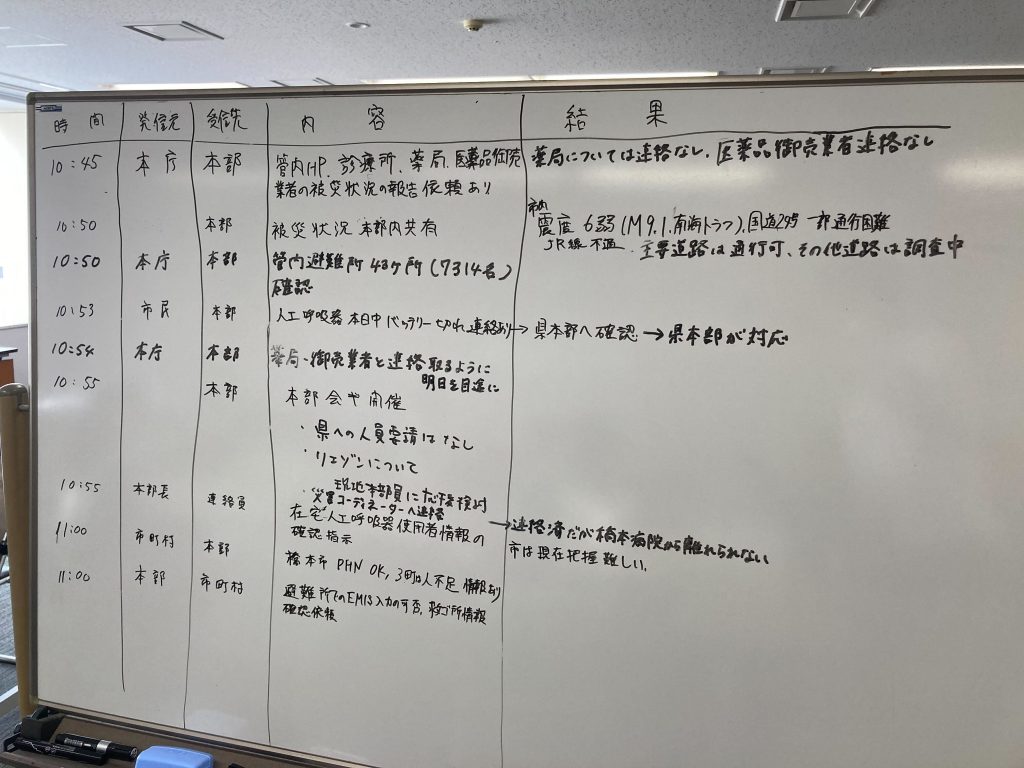 時間 発信元 受信先 内容 結果
10:45 本庁 本部 管内HP、診療所、薬局、医薬品卸売 薬局については連絡なし、医薬品卸売業者連絡なし
業者の被災状況の報告依頼あり
市内
10:50 本部 被災状況 本部内共有 震度 6弱(M9.1、南海トラフ)、国道24号 一部通行困難
JR線不通、主要道路は通行可、その他道路は調査中
10:50 本庁 本部 管内避難所 43ヶ所(7314名)
確認
10:53 市民 本部 人工呼吸器 本日中バッテリー切れ 連絡あり→県本部へ確認→県本部が対応
10:54 本庁 本部 薬局・卸売業者と連絡取るように
明日を目途に
10:55 本部 本部会や開催
・県への人員要請はなし
・リエゾンについて
現地本部員に応援検討
・災害コーディネーターへ連絡→連絡済だが橋本病院から離れられない
10:55 本部長 連絡員 在宅人工呼吸器使用者情報の
確認指示
市は現在把握難しい。
11:00 市町村 本部 橋本市 PHN OK, 3町は人不足 情報あり
11:00 本部 市町村 避難所でのEMIS入力の可否、救ゴ所情報
確認依頼